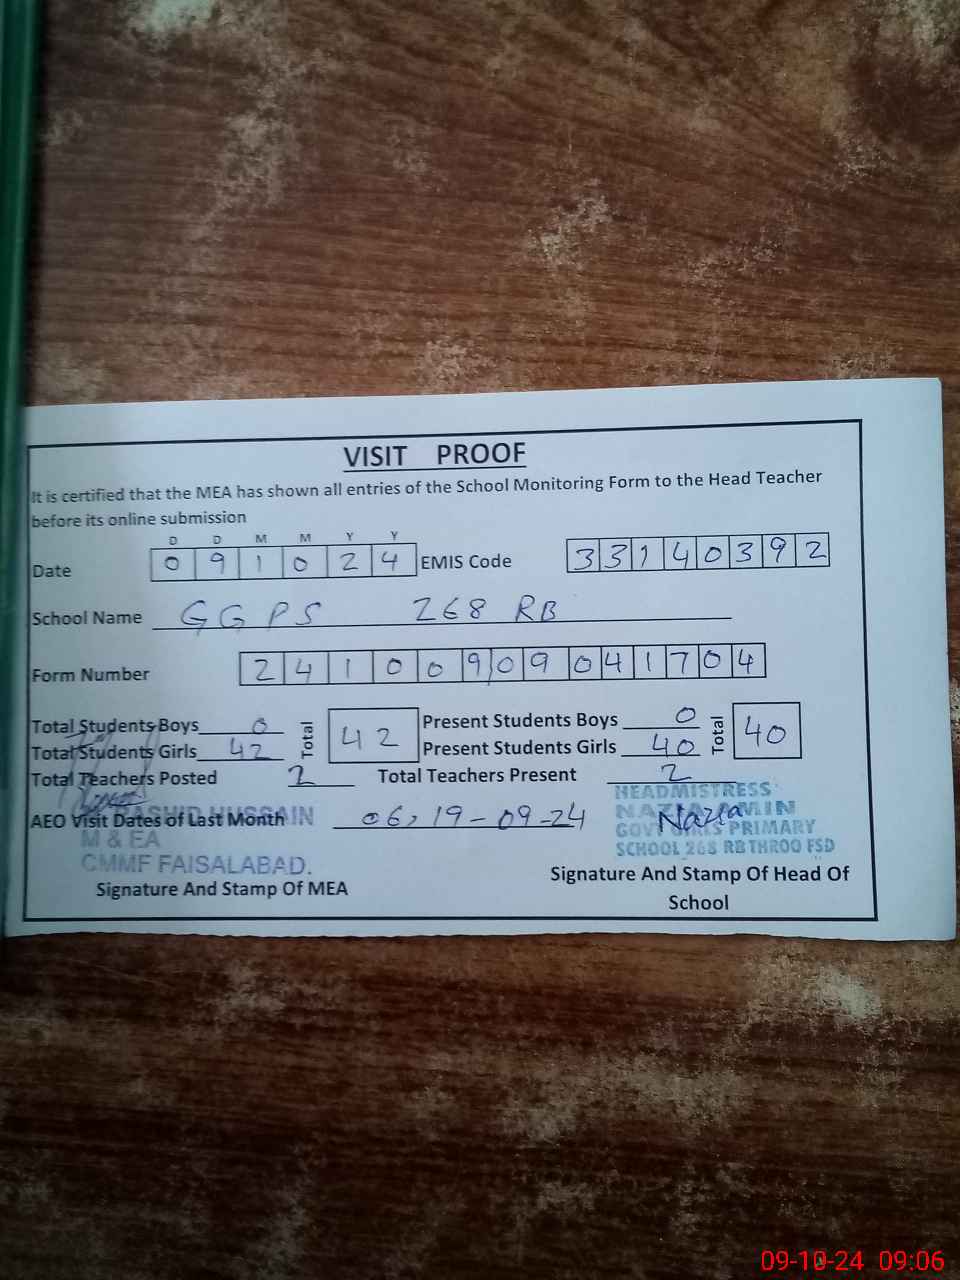 VISIT PROOF
It is certified that the MEA has shown all entries of the School Monitoring Form to the Head Teacher
before its online submission
D D M M Y Y
Date 0 9 1 0 2 4 EMIS Code 3 3 1 4 0 3 9 2
School Name GGPS 268 RB
Form Number 2 4 1 0 0 9 0 9 0 4 1 7 0 4
Total Students Boys 0 Total 42 Present Students Boys 0 Total 40
Total Students Girls 42 Present Students Girls 40
Total Teachers Posted 2 Total Teachers Present 2
HEADMISTRESS
RASHID HUSSAIN
AEO Visit Dates of Last Month 06, 19-09-24
NAZIA AMIN
Nazia
M & EA
GOVT GIRLS PRIMARY
CMMF FAISALABAD.
SCHOOL 268 RB THROO FSD
Signature And Stamp Of MEA
Signature And Stamp Of Head Of
School
09-10-24 09:06